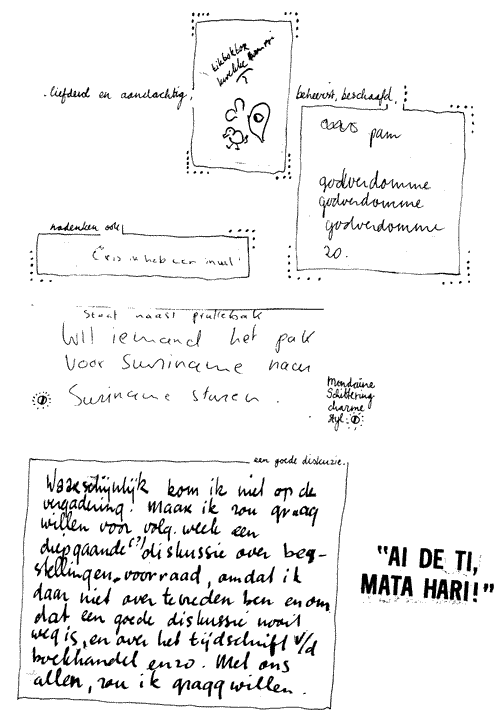 liefdevol en aandachtig,
beheerst, beschaafd,
pam
godverdomme
godverdomme
godverdomme
20.
nadenken ook
ik heb een
staat naast prullebak
Wil iemand het pak
voor Suriname naar
Suriname sturen.
Mondaine
Schittering
charme
styl
een goede diskuzie.
Waarschijnlijk kom ik niet op de
vergadering. Maar ik zou graag
willen voor volg. week een
diepgaande(?) diskussie over be-
stellingen, voorraad, omdat ik
daar niet over tevreden ben en om
dat een goede diskussie nooit
weg is, en over het tijdschrift v/d
boekhandel enzo. Met ons
allen, zou ik graag willen.
"AI DE TI,
MATA HARI!"